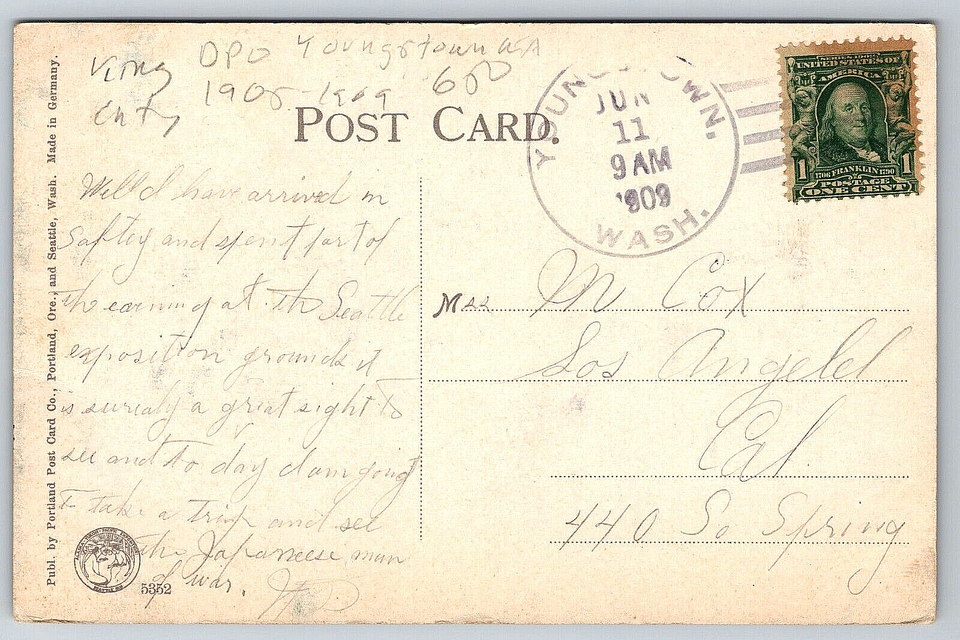 King DPO Youngstown WA
Cnty 1908-1909 600
POST CARD.
YOUNGSTOWN.
JUN
11
9 AM
1909
WASH.
UNITED STATES OF
AMERICA
1 1706 FRANKLIN 1790 1
POSTAGE
ONE CENT
Publ. by Portland Post Card Co., Portland, Ore., and Seattle, Wash. Made in Germany.
Well I have arrived in
saftey and spent part of
the evening at th Seattle
exposition grounds it
is surealy a great sight to
see and to day I am going
to take a trip and see
the Japaneese man
of war.
5352
M Cox
Los Angeles
Cal
440 So Spring